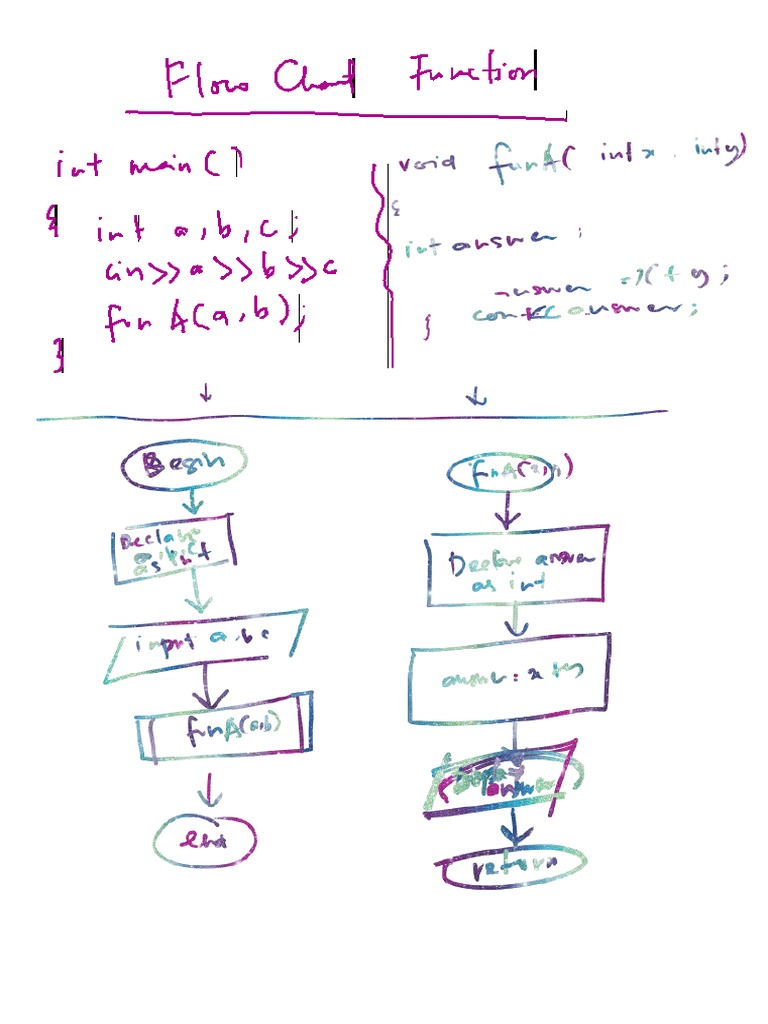 Flow Chart Function
int main()
{
int a, b, c;
cin>>a>>b>>c
funA(a,b);
}
void funA( int x, int y)
{
int answer;
answer = x + y;
cout<< answer;
}
Begin
Declare
a,b,c
as int
input a,b c
funA(a,b)
end
funA(x,y)
Declare answer
as int
answer = x + y
answer
return